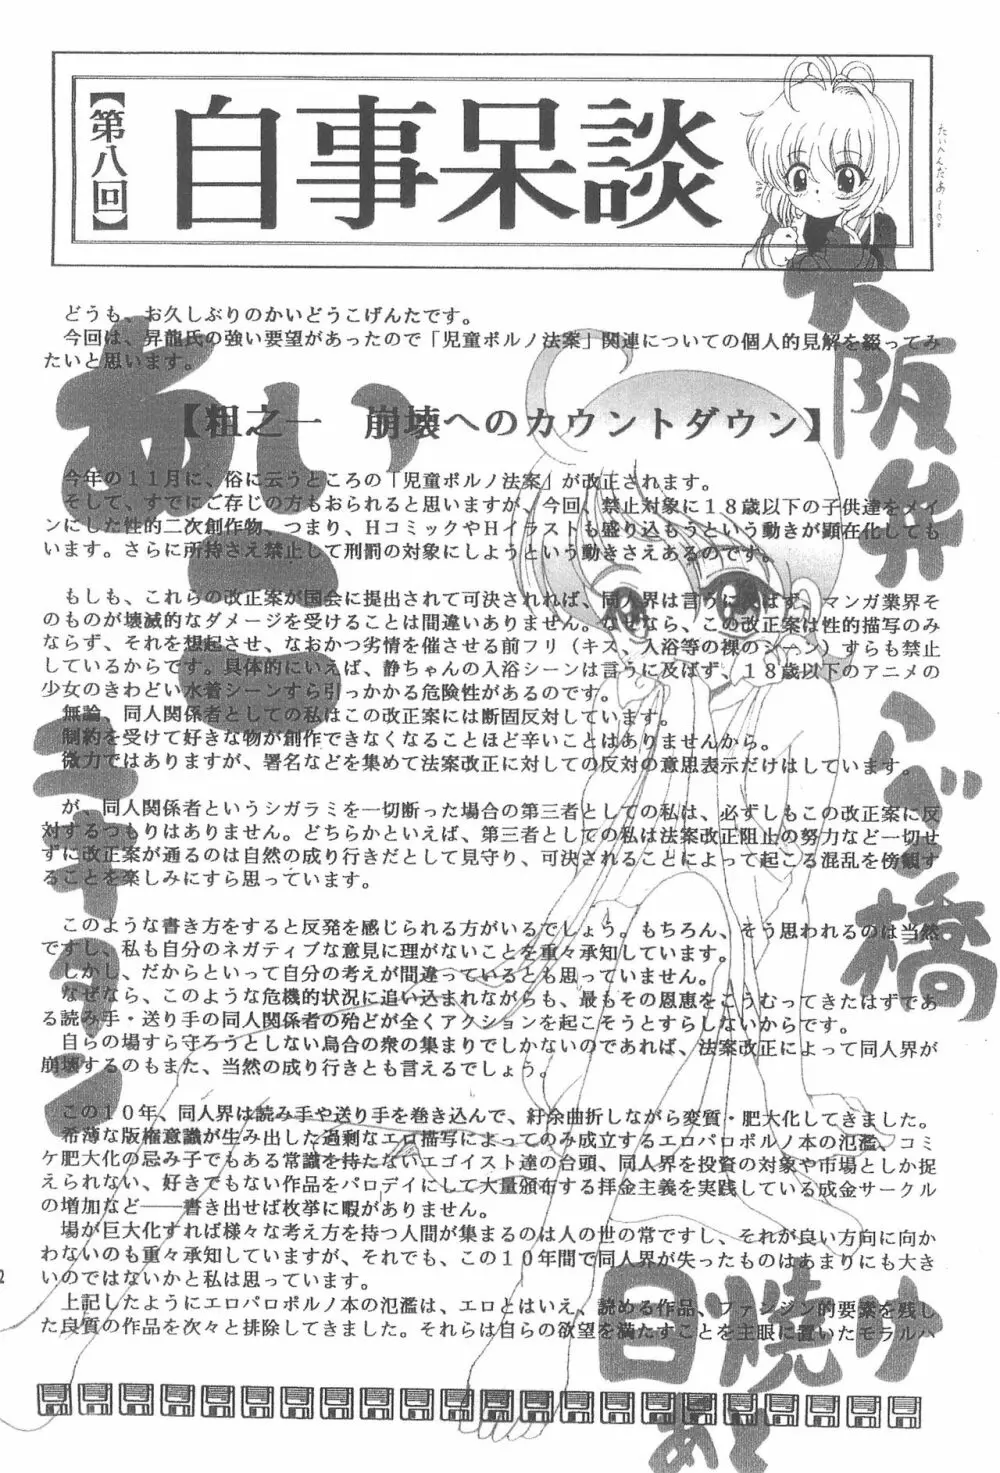 【第八回】
自事呆談
たいへんだあ〜〜
どうも、お久しぶりのかいどうこげんたです。
今回は、昇龍氏の強い要望があったので「児童ポルノ法案」関連についての個人的見解を綴ってみ
たいと思います。
【粗之一　崩壊へのカウントダウン】
今年の１１月に、俗に云うところの「児童ポルノ法案」が改正されます。
そして、すでにご存じの方もおられると思いますが、今回、禁止対象に１８歳以下の子供達をメイ
ンにした性的二次創作物、つまり、ＨコミックやＨイラストも盛り込もうという動きが顕在化しても
います。さらに所持さえ禁止して刑罰の対象にしようという動きさえあるのです。
もしも、これらの改正案が国会に提出されて可決されれば、同人界は言うに及ばず、マンガ業界そ
のものが壊滅的なダメージを受けることは間違いありません。なぜなら、この改正案は性的描写のみ
ならず、それを想起させ、なおかつ劣情を催させる前フリ（キス、入浴等の裸のシーン）すらも禁止
しているからです。具体的にいえば、静ちゃんの入浴シーンは言うに及ばず、１８歳以下のアニメの
少女のきわどい水着シーンすら引っかかる危険性があるのです。
無論、同人関係者としての私はこの改正案には断固反対しています。
制約を受けて好きな物が創作できなくなることほど辛いことはありませんから。
微力ではありますが、署名などを集めて法案改正に対しての反対の意思表示だけはしています。
が、同人関係者というシガラミを一切断った場合の第三者としての私は、必ずしもこの改正案に反
対するつもりはありません。どちらかといえば、第三者としての私は法案改正阻止の努力など一切せ
ずに改正案が通るのは自然の成り行きだとして見守り、可決されることによって起こる混乱を傍観す
ることを楽しみにすら思っています。
このような書き方をすると反発を感じられる方がいるでしょう。もちろん、そう思われるのは当然
ですし、私も自分のネガティブな意見に理がないことを重々承知しています。
しかし、だからといって自分の考えが間違っているとも思っていません。
なぜなら、このような危機的状況に追い込まれながらも、最もその恩恵をこうむってきたはずであ
る読み手・送り手の同人関係者の殆どが全くアクションを起こそうとすらしないからです。
自らの場すら守ろうとしない烏合の衆の集まりでしかないのであれば、法案改正によって同人界が
崩壊するのもまた、当然の成り行きとも言えるでしょう。
この１０年、同人界は読み手や送り手を巻き込んで、紆余曲折しながら変質・肥大化してきました。
希薄な版権意識が生み出した過剰なエロ描写によってのみ成立するエロパロポルノ本の氾濫、コミ
ケ肥大化の忌み子でもある常識を持たないエゴイスト達の台頭、同人界を投資の対象や市場としか捉
えられない、好きでもない作品をパロデイにして大量頒布する拝金主義を実践している成金サークル
の増加など――書き出せば枚挙に暇がありません。
場が巨大化すれば様々な考え方を持つ人間が集まるのは人の世の常ですし、それが良い方向に向か
わないのも重々承知していますが、それでも、この１０年間で同人界が失ったものはあまりにも大き
いのではないかと私は思っています。
上記したようにエロパロポルノ本の氾濫は、エロとはいえ、読める作品、ファンジン的要素を残し
た良質の作品を次々と排除してきました。それらは自らの欲望を満たすことを主眼に置いたモラルハ
大阪弁
日焼け
あと
2